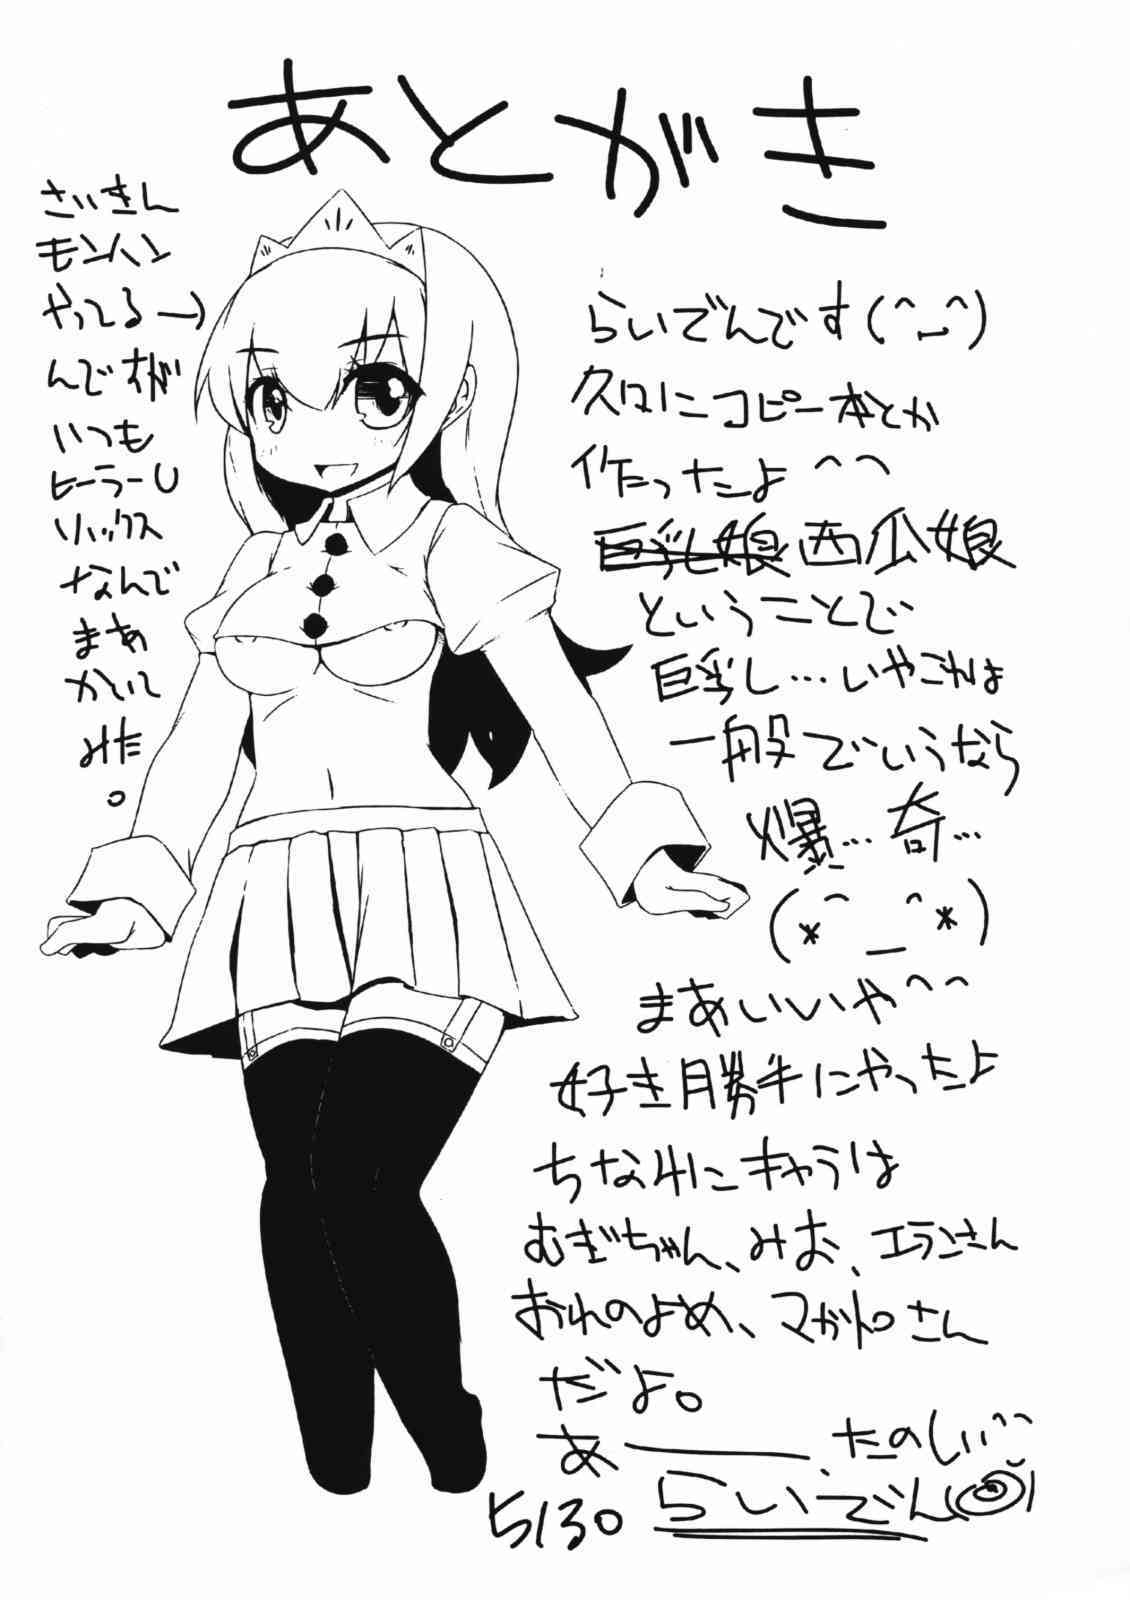 あとがき
さいきん
モンハン
やってる→
んですが
いつも
ヒーラーU
ソックス
なんで
まあ
かいて
みた。
らいでんです(^_^)
久々にコピー本とか
作ったよ^^
巨乳娘 西瓜娘
ということで
巨乳し…いやこれは
一般でいうなら
爆…奇…
(*^_^*)
まあいいや^^
好き勝手にやったよ
ちなみにキャラは
むぎちゃん、みお、エランさん
おれのよめ、マガトロさん
だよ。
あ――、たのしい^^
5/30 らいでん